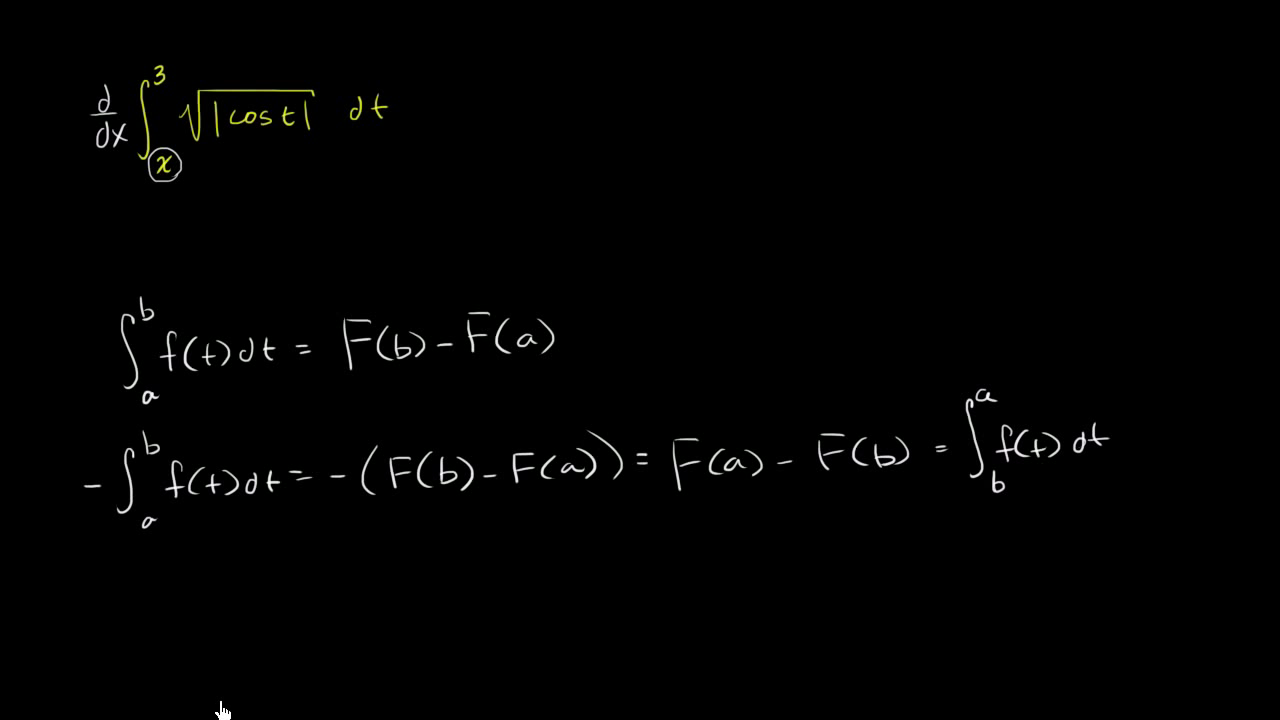 d/dx ∫_x^3 √|cos t| dt
∫_a^b f(t)dt = F(b) - F(a)
-∫_a^b f(t)dt = -(F(b) - F(a)) = F(a) - F(b) = ∫_b^a f(t) dt